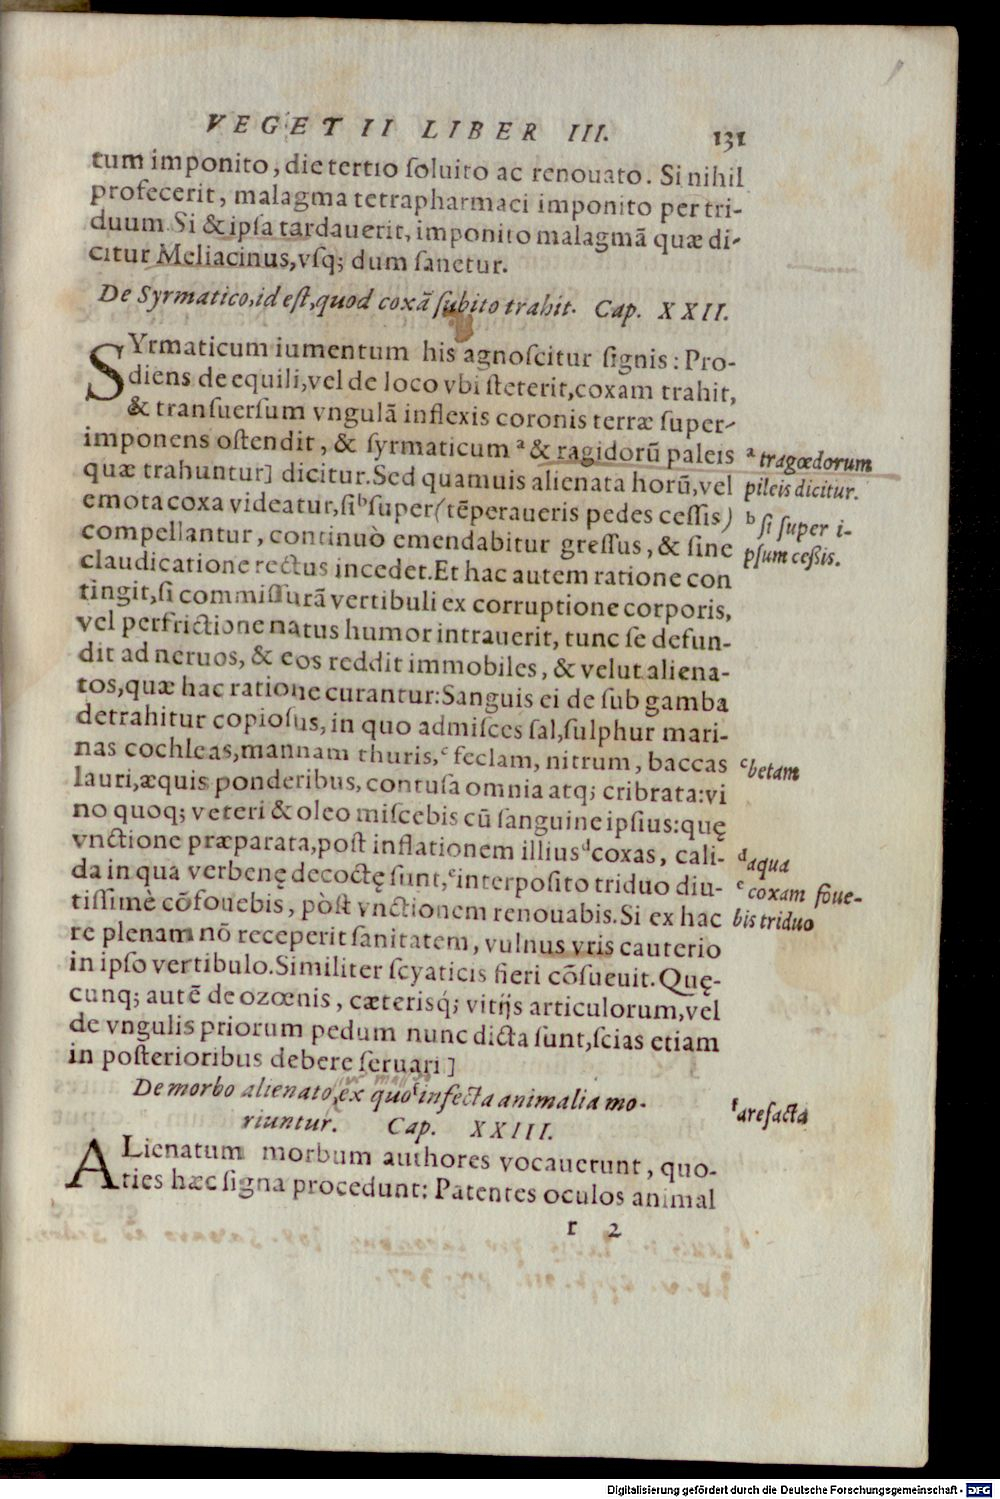 VEGETII LIBER III. 131
tum imponito, die tertio ſoluito ac renouato. Si nihil
profecerit, malagma tetrapharmaci imponito per tri-
duum. Si & ipſa tardauerit, imponito malagmā quæ di-
citur Meliacinus, vſq; dum ſanetur.
De Syrmatico, id eſt, quod coxā ſubito trahit. Cap. XXII.
SYrmaticum iumentum his agnoſcitur ſignis: Pro-
diens de equili, vel de loco vbi ſteterit, coxam trahit,
& tranſuerſum vngulā inflexis coronis terræ ſuper-
imponens oſtendit, & ſyrmaticum ᵃ & ragidorū paleis
ᵃ tragœdorum
quæ trahuntur] dicitur. Sed quamuis alienata horū, vel
pileis dicitur.
emota coxa videatur, ſi ᵇ ſuper (tēperaueris pedes ceſſis)
ᵇ ſi ſuper i-
compellantur, continuò emendabitur greſſus, & ſine
pſum ceßis.
claudicatione rectus incedet. Et hac autem ratione con
tingit, ſi commiſſurā vertibuli ex corruptione corporis,
vel perfrictione natus humor intrauerit, tunc ſe defun-
dit ad neruos, & eos reddit immobiles, & velut aliena-
tos, quæ hac ratione curantur: Sanguis ei de ſub gamba
detrahitur copioſus, in quo admiſces ſal, ſulphur mari-
nas cochleas, mannam thuris, ᶜ feclam, nitrum, baccas
ᶜ betam
lauri, æquis ponderibus, contuſa omnia atq; cribrata: vi
no quoq; veteri & oleo miſcebis cū ſanguine ipſius: quę
vnctione præparata, poſt inflationem illius ᵈ coxas, cali-
ᵈ aqua
da in qua verbenę decoctę ſunt, ᵉ interpoſito triduo diu-
ᵉ coxam foue-
tiſſimè cōfouebis, poſt vnctionem renouabis. Si ex hac
bis triduo
re plenam nō receperit ſanitatem, vulnus vris cauterio
in ipſo vertibulo. Similiter ſcyaticis fieri cōſueuit. Quę-
cunq; autē de ozœnis, cæteriſq́; vitijs articulorum, vel
de vngulis priorum pedum nunc dicta ſunt, ſcias etiam
in poſterioribus debere ſeruari]
De morbo alienato, ex quo ᶠ infecta animalia mo-
ᶠ arefacta
riuntur. Cap. XXIII.
ALienatum morbum authores vocauerunt, quo-
ties hæc ſigna procedunt: Patentes oculos animal
r 2
Digitalisierung gefördert durch die Deutsche Forschungsgemeinschaft - DFG